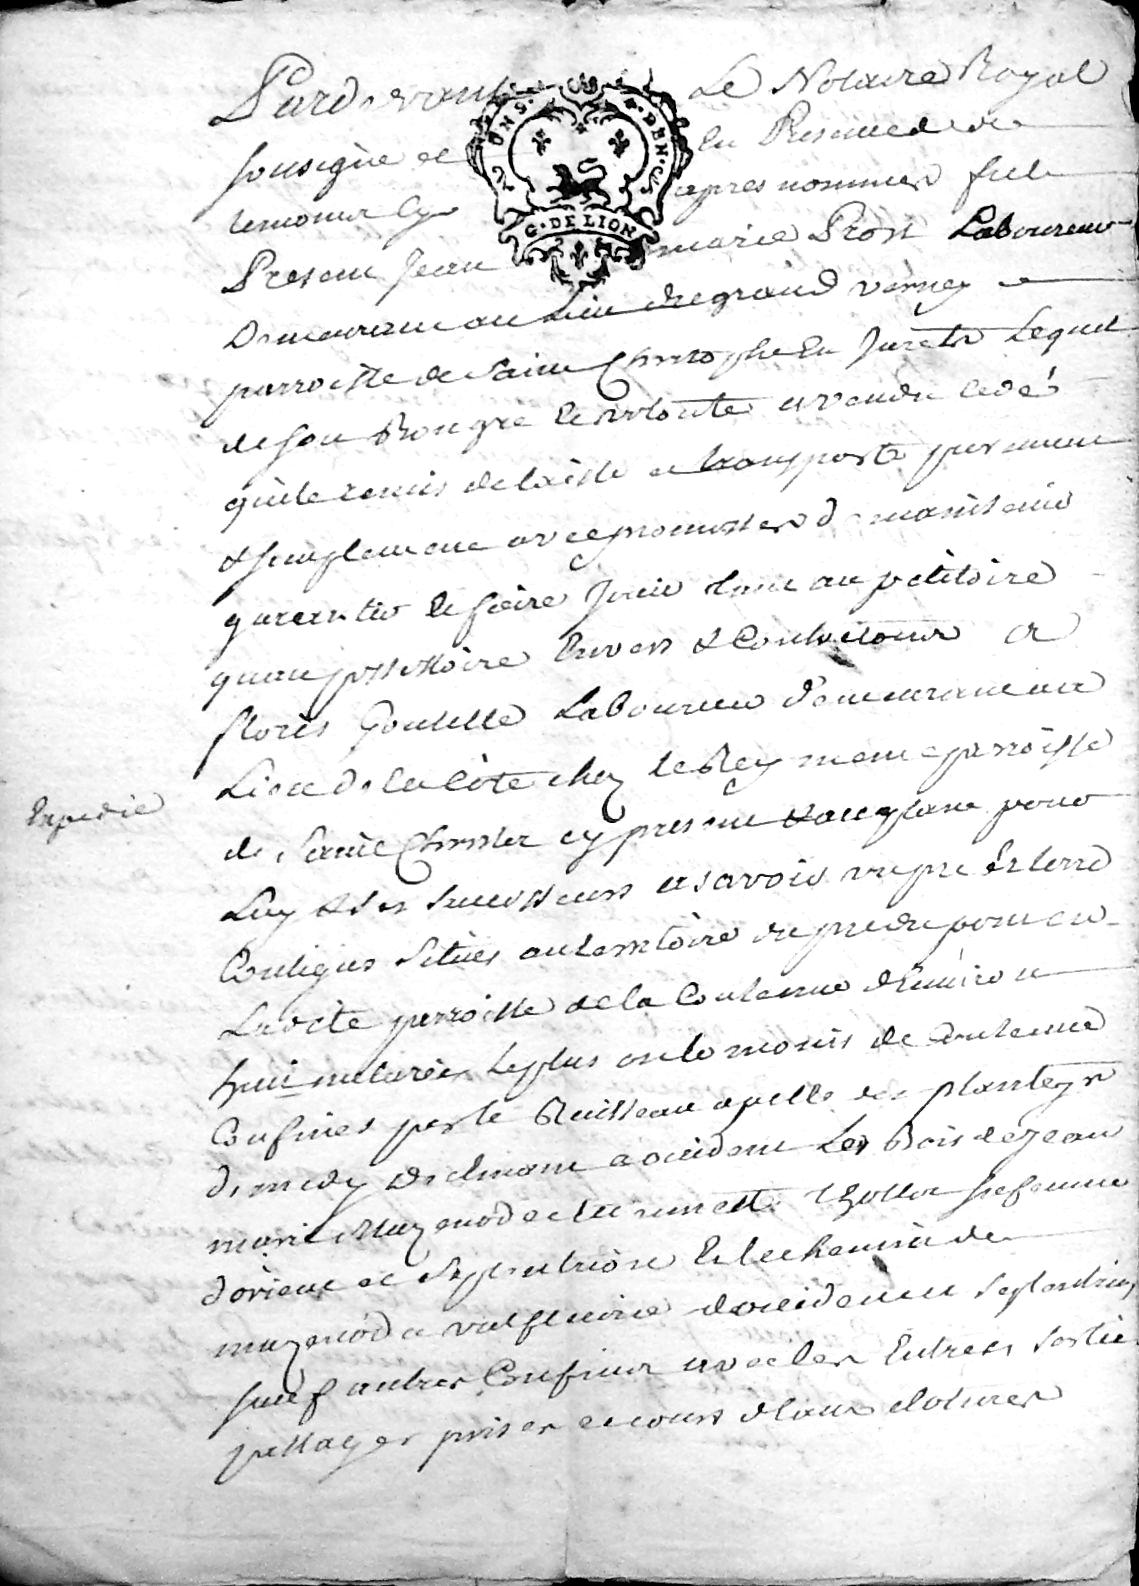 Pardevant Le Notaire Royal
sousigné et En Presence de
temoins Cy apres nommes fut
Present Jean marie Pron Laboureur
Demeurant au Lieu du grand verney
parroisse de Saint Christophe En Jarets Lequel
de son Bon gré et volonté a vendu cedé
quitté remis delaissé et transporté purement
& simplement avec promesses de maintenir
garentir et faire Jouir tant au petitoire
quau possessoire Envers & Contre tous a
floris Goutelle Laboureur demeurant au
Lieu de la Côte chez le Rey meme parroisse
Expedié
de Saint Christ cy present & acceptant pour
Luy & ses successeurs a savoir un pré et terre
Contigus Situés au territoire du pre du pont en
Ladite parroisse de la Contenue d'environ
huit meterées Le plus ou le moins de Contenue
Confinés par le Ruisseau apellé des planteys
de midy declinant a occident Les Bois de Jean
marie Mazenod et thollot sa femme
d'orient et Septentrion Et le chemin de
mazenod a valfleurie d'occident Septentrion
sauf autres Confins avec les Entrées sorties
passages prises et cours d'eaux clotures
G. DE LION